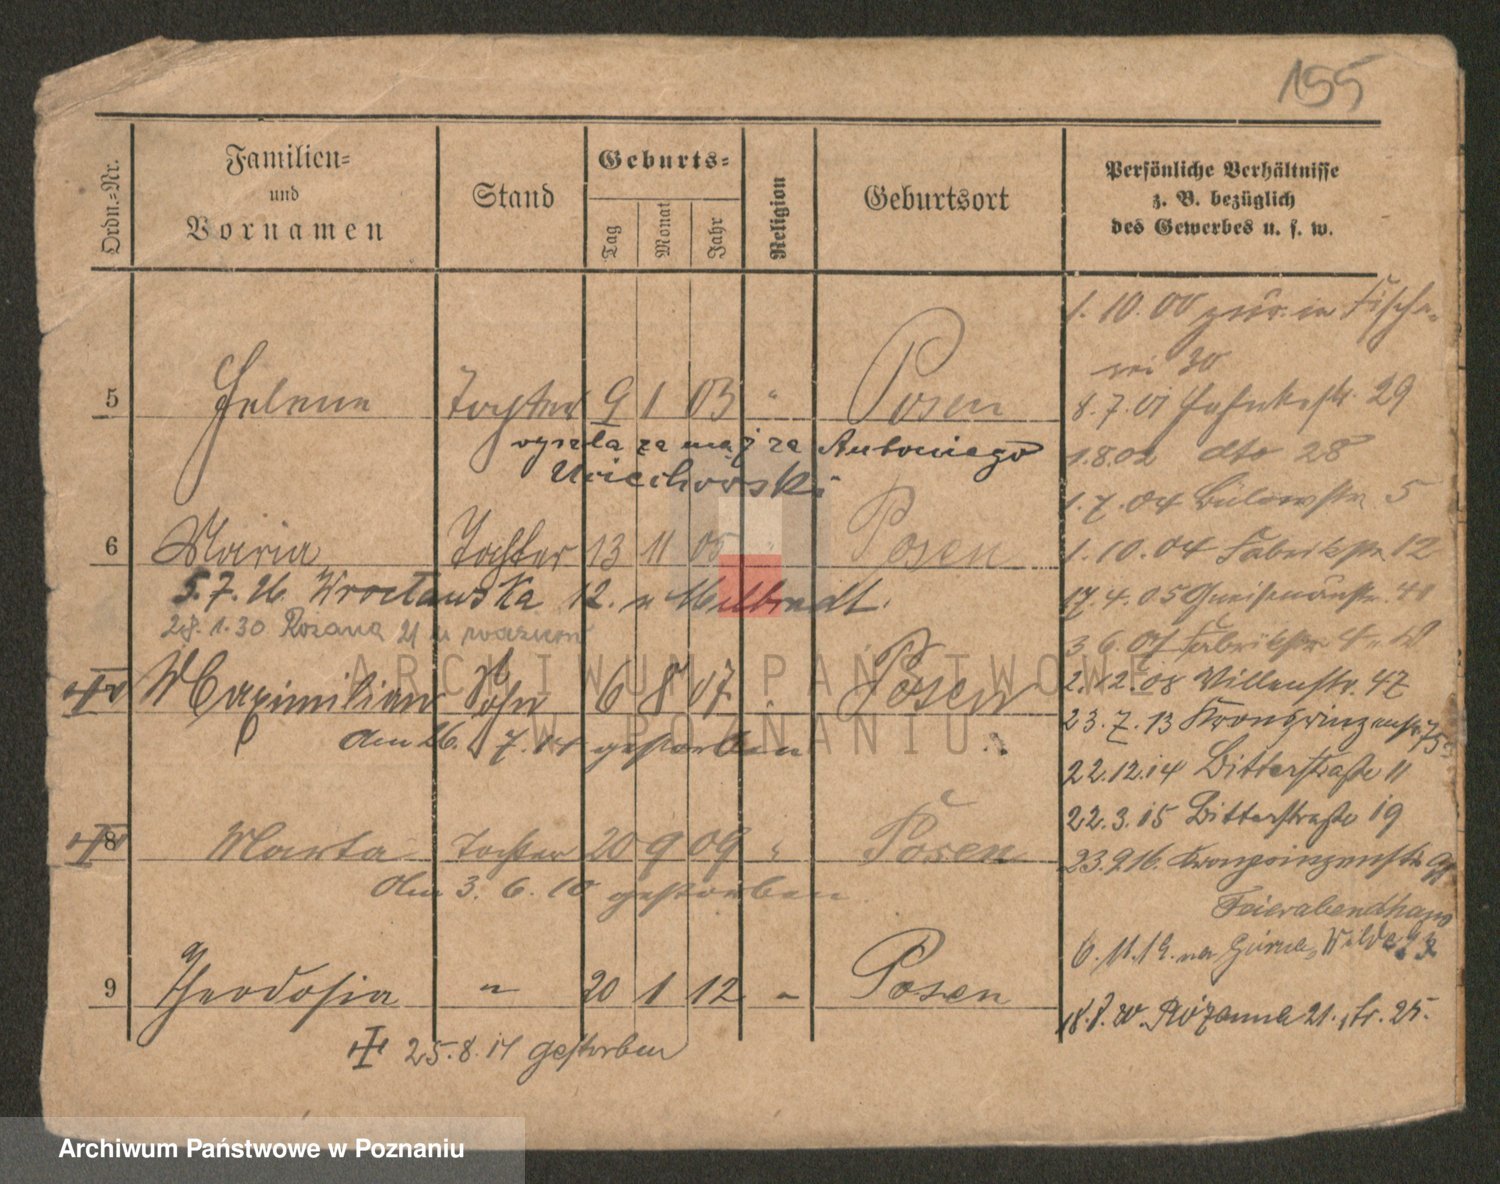 155
Ordn.-Nr.
Familien-
und
Vornamen
Stand
Geburts-
Tag
Monat
Jahr
Religion
Geburtsort
Persönliche Verhältnisse
z. B. bezüglich
des Gewerbes u. s. w.
1. 10. 00 zur. in Fische-
rei 30
5 Helene Tochter 9 1 03 " Posen
8. 7. 01 29
wyszła za mąż za Antoniego
1.8.02 dto 28
1. 7. 04 Bülowstr. 5
6 Maria Tochter 13 11 05 " Posen
1. 10. 04 Fabrikstr. 12
5.7.26 Wrocławska 12. u
17. 4. 05 Gneisenaustr. 41
28. 1. 30 Rozana 21 u
3 6. 07 Fabrikstr.
Maximilian Sohn 6 8 07 " Posen
2. 12. 08 Villenstr. 47
am 26. 7. 14 gestorben
23. 7. 13 Kronprinzenstr.
22.12.14 Bitterstraße 11
22. 3. 15 Bitterstraße 19
8 Marta Tochter 20 9 09 " Posen
23.9.16. Kronprinzenstr.
am 3. 6. 10 gestorben
Feierabendhaus
6. 11. 19. na Górna Wilda
9 Theodosia " 20 1 12 " Posen
18. 8. 20. Rózanna 21. tr. 25.
25. 8. 17 gestorben
ARCHIWUM PAŃSTWOWE
W POZNANIU
Archiwum Państwowe w Poznaniu